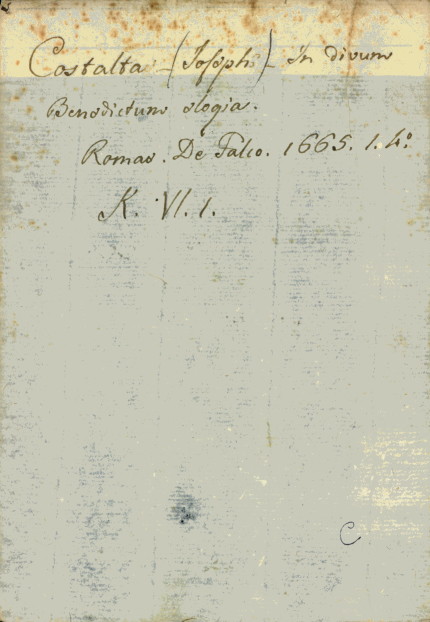 Costalta (Josephi) In divum
Benedictum elogia.
Romae. De Falco. 1665. 1. 4.°
K. VI. 1.
C